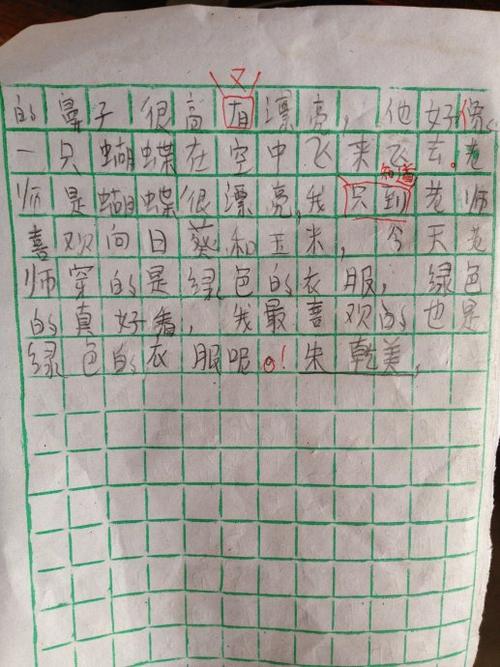 又
的鼻子很高有漂亮，他好像
一只蝴蝶在空中飞来飞去。老
知道
师是蝴蝶很漂亮，我只到老师
喜欢向日葵和玉米，今天老
师穿的是绿色的衣服，绿色
的真好看，我最喜欢的也是
绿色的衣服呢。！朱乾美，